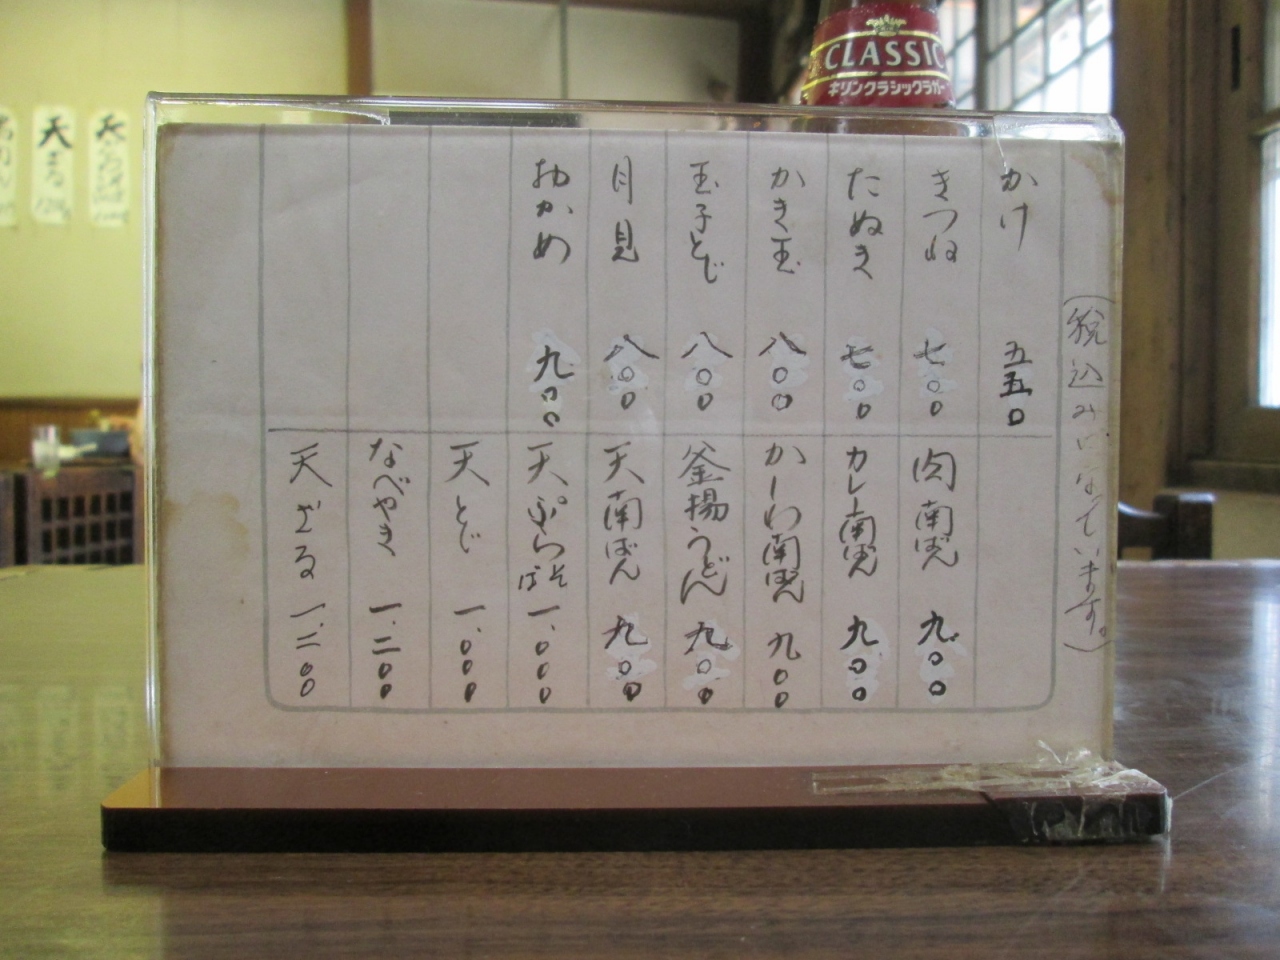 CLASSIC
キリンクラシックラガー
(税込みになっています。)
かけ 五五〇
きつね 七〇〇
たぬき 七〇〇
かき玉 八〇〇
玉子とじ 八〇〇
月見 八〇〇
おかめ 九〇〇
肉南ばん 九〇〇
カレー南ばん 九〇〇
かしわ南ばん 九〇〇
釜揚うどん 九〇〇
天南ばん 九〇〇
天ぷらそば 一、〇〇〇
天とじ 一、〇〇〇
なべやき 一、二〇〇
天ざる 一、二〇〇